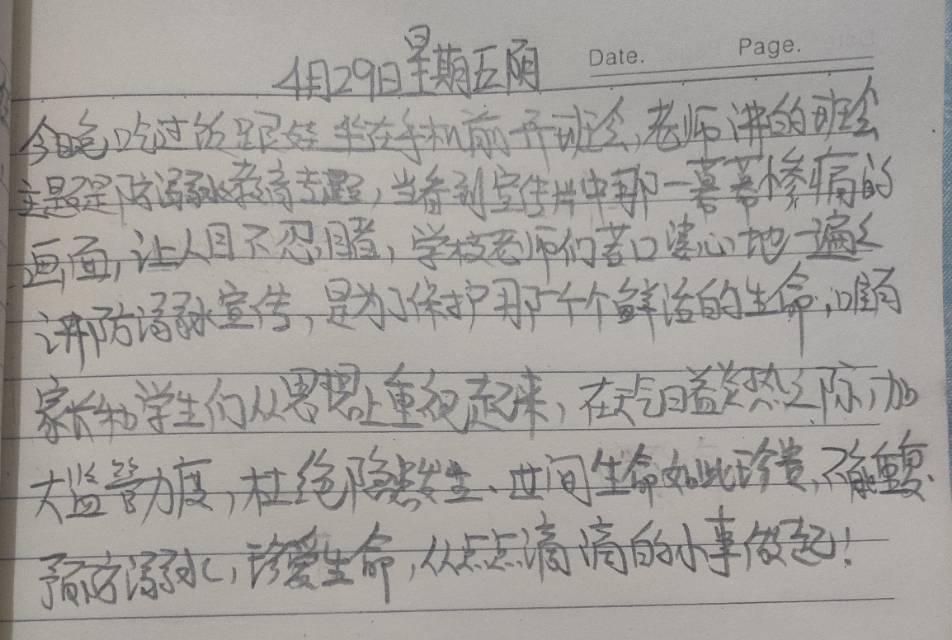 Date. Page.
4月29日星期五阴
今晚吃过饭跟娃坐在手机前开班会,老师讲的班会
主题是防溺水教育专题,当看到宣传片中那一幕幕惨痛的
画面,让人目不忍睹,学校老师们苦口婆心地一遍々
讲防溺水宣传,是为了保护那个个鲜活的生命,唯有
家长和学生们从思想上重视起来,在天气日益炎热之际,加
大监管力度,杜绝隐患发生、世间生命如此珍贵,不能重复.
预防溺水,珍爱生命,从点点滴滴的小事做起!